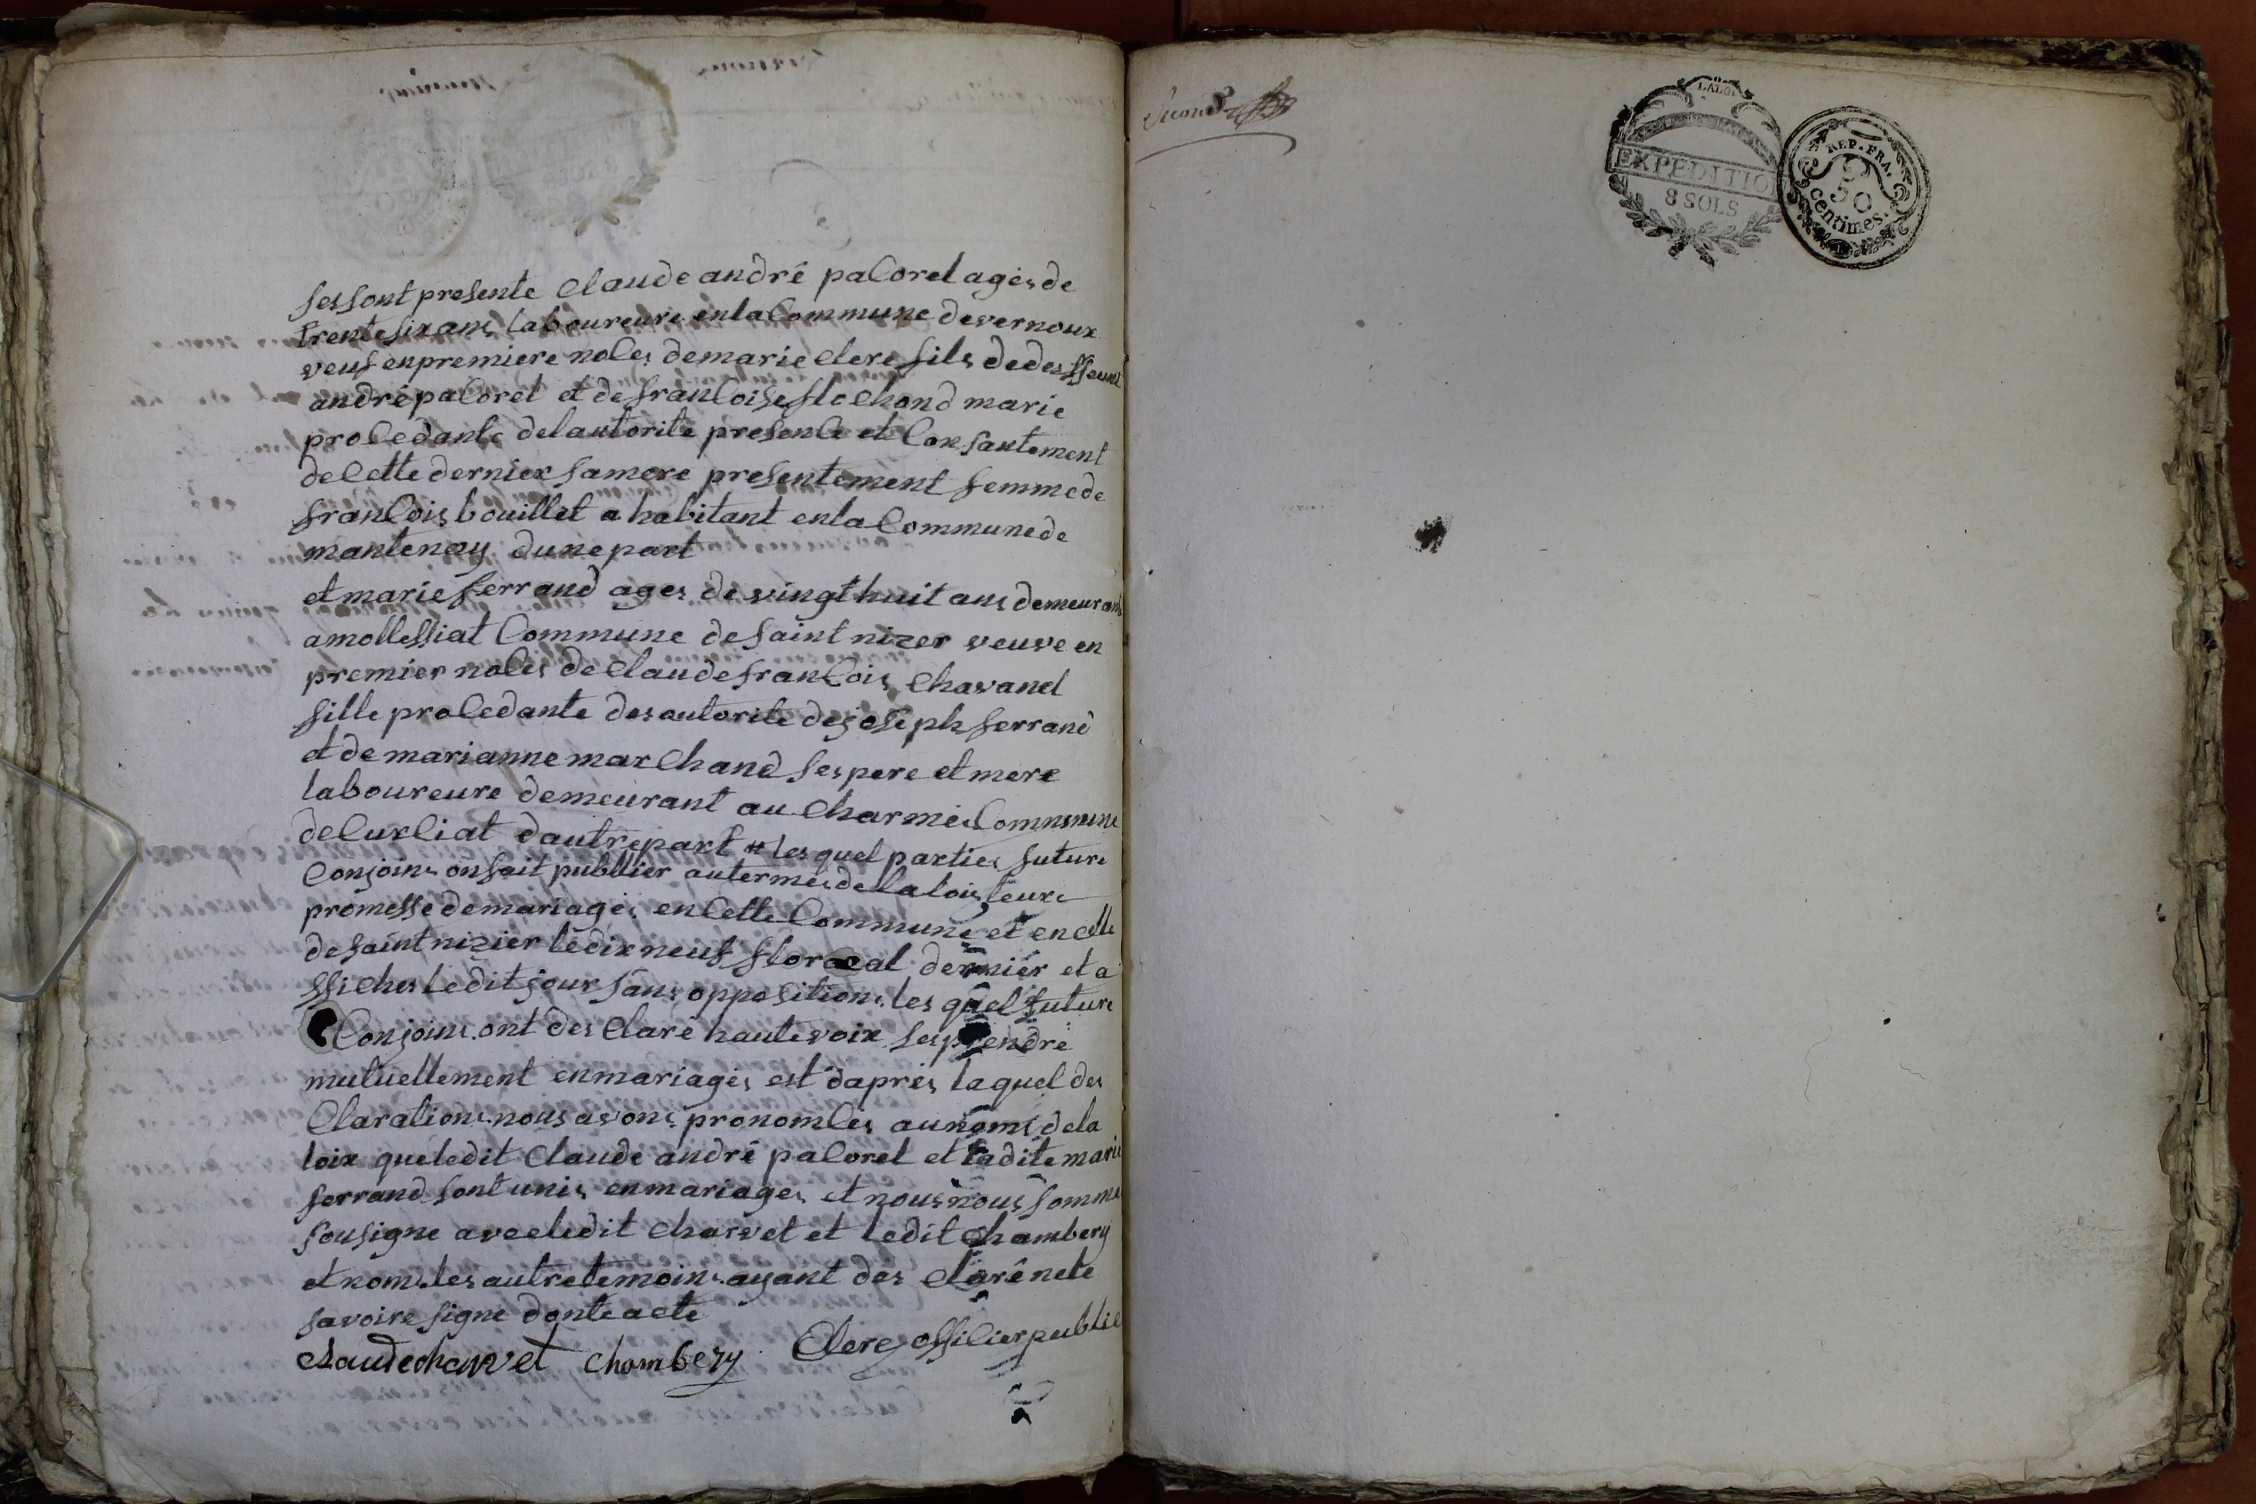 sessont presente Claude andré paCoret agés de
trente six ans laboureure enla Commune devernoux
veuf enpremiere noCes demarie clere fils dedesffeunt
andré paCoret et de franCoise floChond marie
proCedante delautorite presenCe et Consantement
deCette dernier samere presentement femmede
franCois bouillet a habitant enla Communede
mantenay dunepart
et marie ferrand ages de vingt huit ans demeurant
amollessiat Commune desaint nizer veuve en
premier noCes deClaudefranCois Chavanel
fille proCedante desautorite dejoseph ferrand
et de marianne marChand ses pere et mere
laboureure demeurant au Charmes Commune
deCurCiat dautrepart # lesquel parties future
Conjoins onfait publlier autermes dela lois leure
promesse demariages enCette Commune et en celle
desaint nizier ledixneuf floreal dernier et a
ffiches ledit jour sans oppositions les quel future
Conjoins ont des Claré hautevoix ses prendre
mutuellement enmariages est daprés laquel des
Clarations nous avons pronomCes aunoms dela
loix queledit Claude andré paCoret et ladite marie
ferrand sont unis enmariages et nous nous somme
sousigne avecledit Charvet et ledit Chambery
et nom les autre temoins ayant des Claré nele
savoire signe donte acte
Claude charvet chambery Clere offiCier public
second
LA LOI
EXPEDITION
8 SOLS
REP. FRA.
50
centimes.